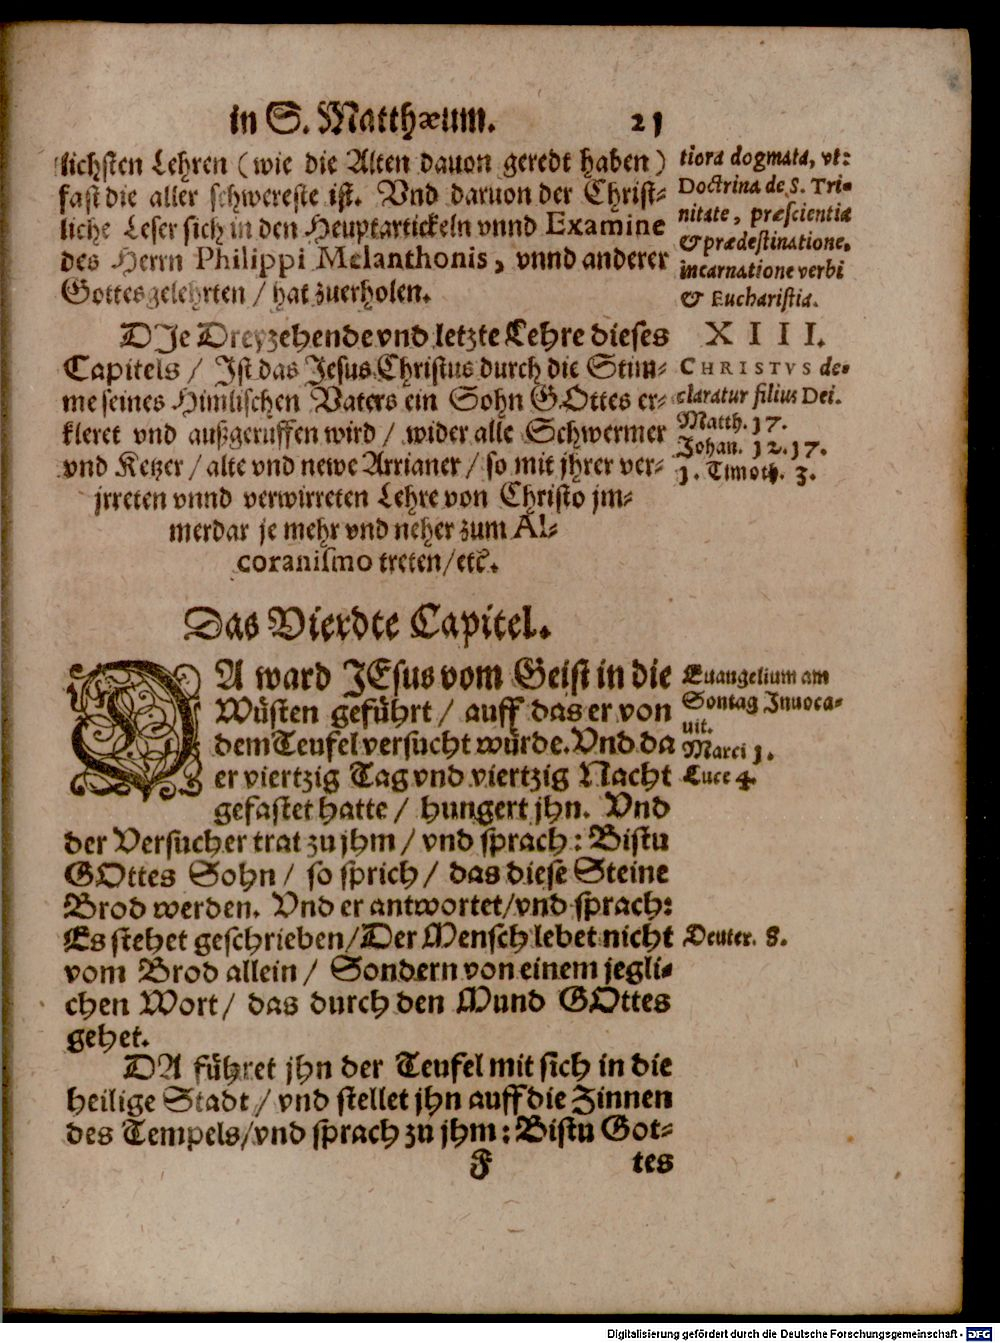 in S. Matthæum. 21
lichsten Lehren (wie die Alten dauon geredt haben)
fast die aller schwereste ist. Vnd daruon der Christ-
liche Leser sich in den Heuptartickeln vnnd Examine
des Herrn Philippi Melanthonis, vnnd anderer
Gottesgelehrten / hat zuerholen.
tiora dogmata, vt:
Doctrina de S. Tri-
nitate, præscientia
& prædestinatione,
incarnatione verbi
& Eucharistia.
DJe Dreyzehende vnd letzte Lehre dieses
Capitels / Jst das Jesus Christus durch die Stim-
me seines Himlischen Vaters ein Sohn GOttes er-
kleret vnd außgeruffen wird / wider alle Schwermer
vnd Ketzer / alte vnd newe Arrianer / so mit jhrer ver-
jrreten vnnd verwirreten Lehre von Christo jm-
merdar je mehr vnd neher zum Al-
coranismo treten / etc.
XIII.
CHRISTVS de-
claratur filius Dei.
Matth. 17.
Johan. 12. 17.
1. Timoth. 3.
Das Vierdte Capitel.
DA ward JEsus vom Geist in die
Wüsten geführt / auff das er von
dem Teufel versucht würde. Vnd da
er viertzig Tag vnd viertzig Nacht
gefastet hatte / hungert jhn. Vnd
der Versucher trat zu jhm / vnd sprach: Bistu
GOttes Sohn / so sprich / das diese Steine
Brod werden. Vnd er antwortet / vnd sprach:
Es stehet geschrieben / Der Mensch lebet nicht
vom Brod allein / Sondern von einem jegli-
chen Wort / das durch den Mund GOttes
gehet.
Euangelium am
Sontag Jnuoca-
uit.
Marci 1.
Luce 4.
Deuter. 8.
DA führet jhn der Teufel mit sich in die
heilige Stadt / vnd stellet jhn auff die Zinnen
des Tempels / vnd sprach zu jhm: Bistu Got-
F tes
Digitalisierung gefördert durch die Deutsche Forschungsgemeinschaft - DFG